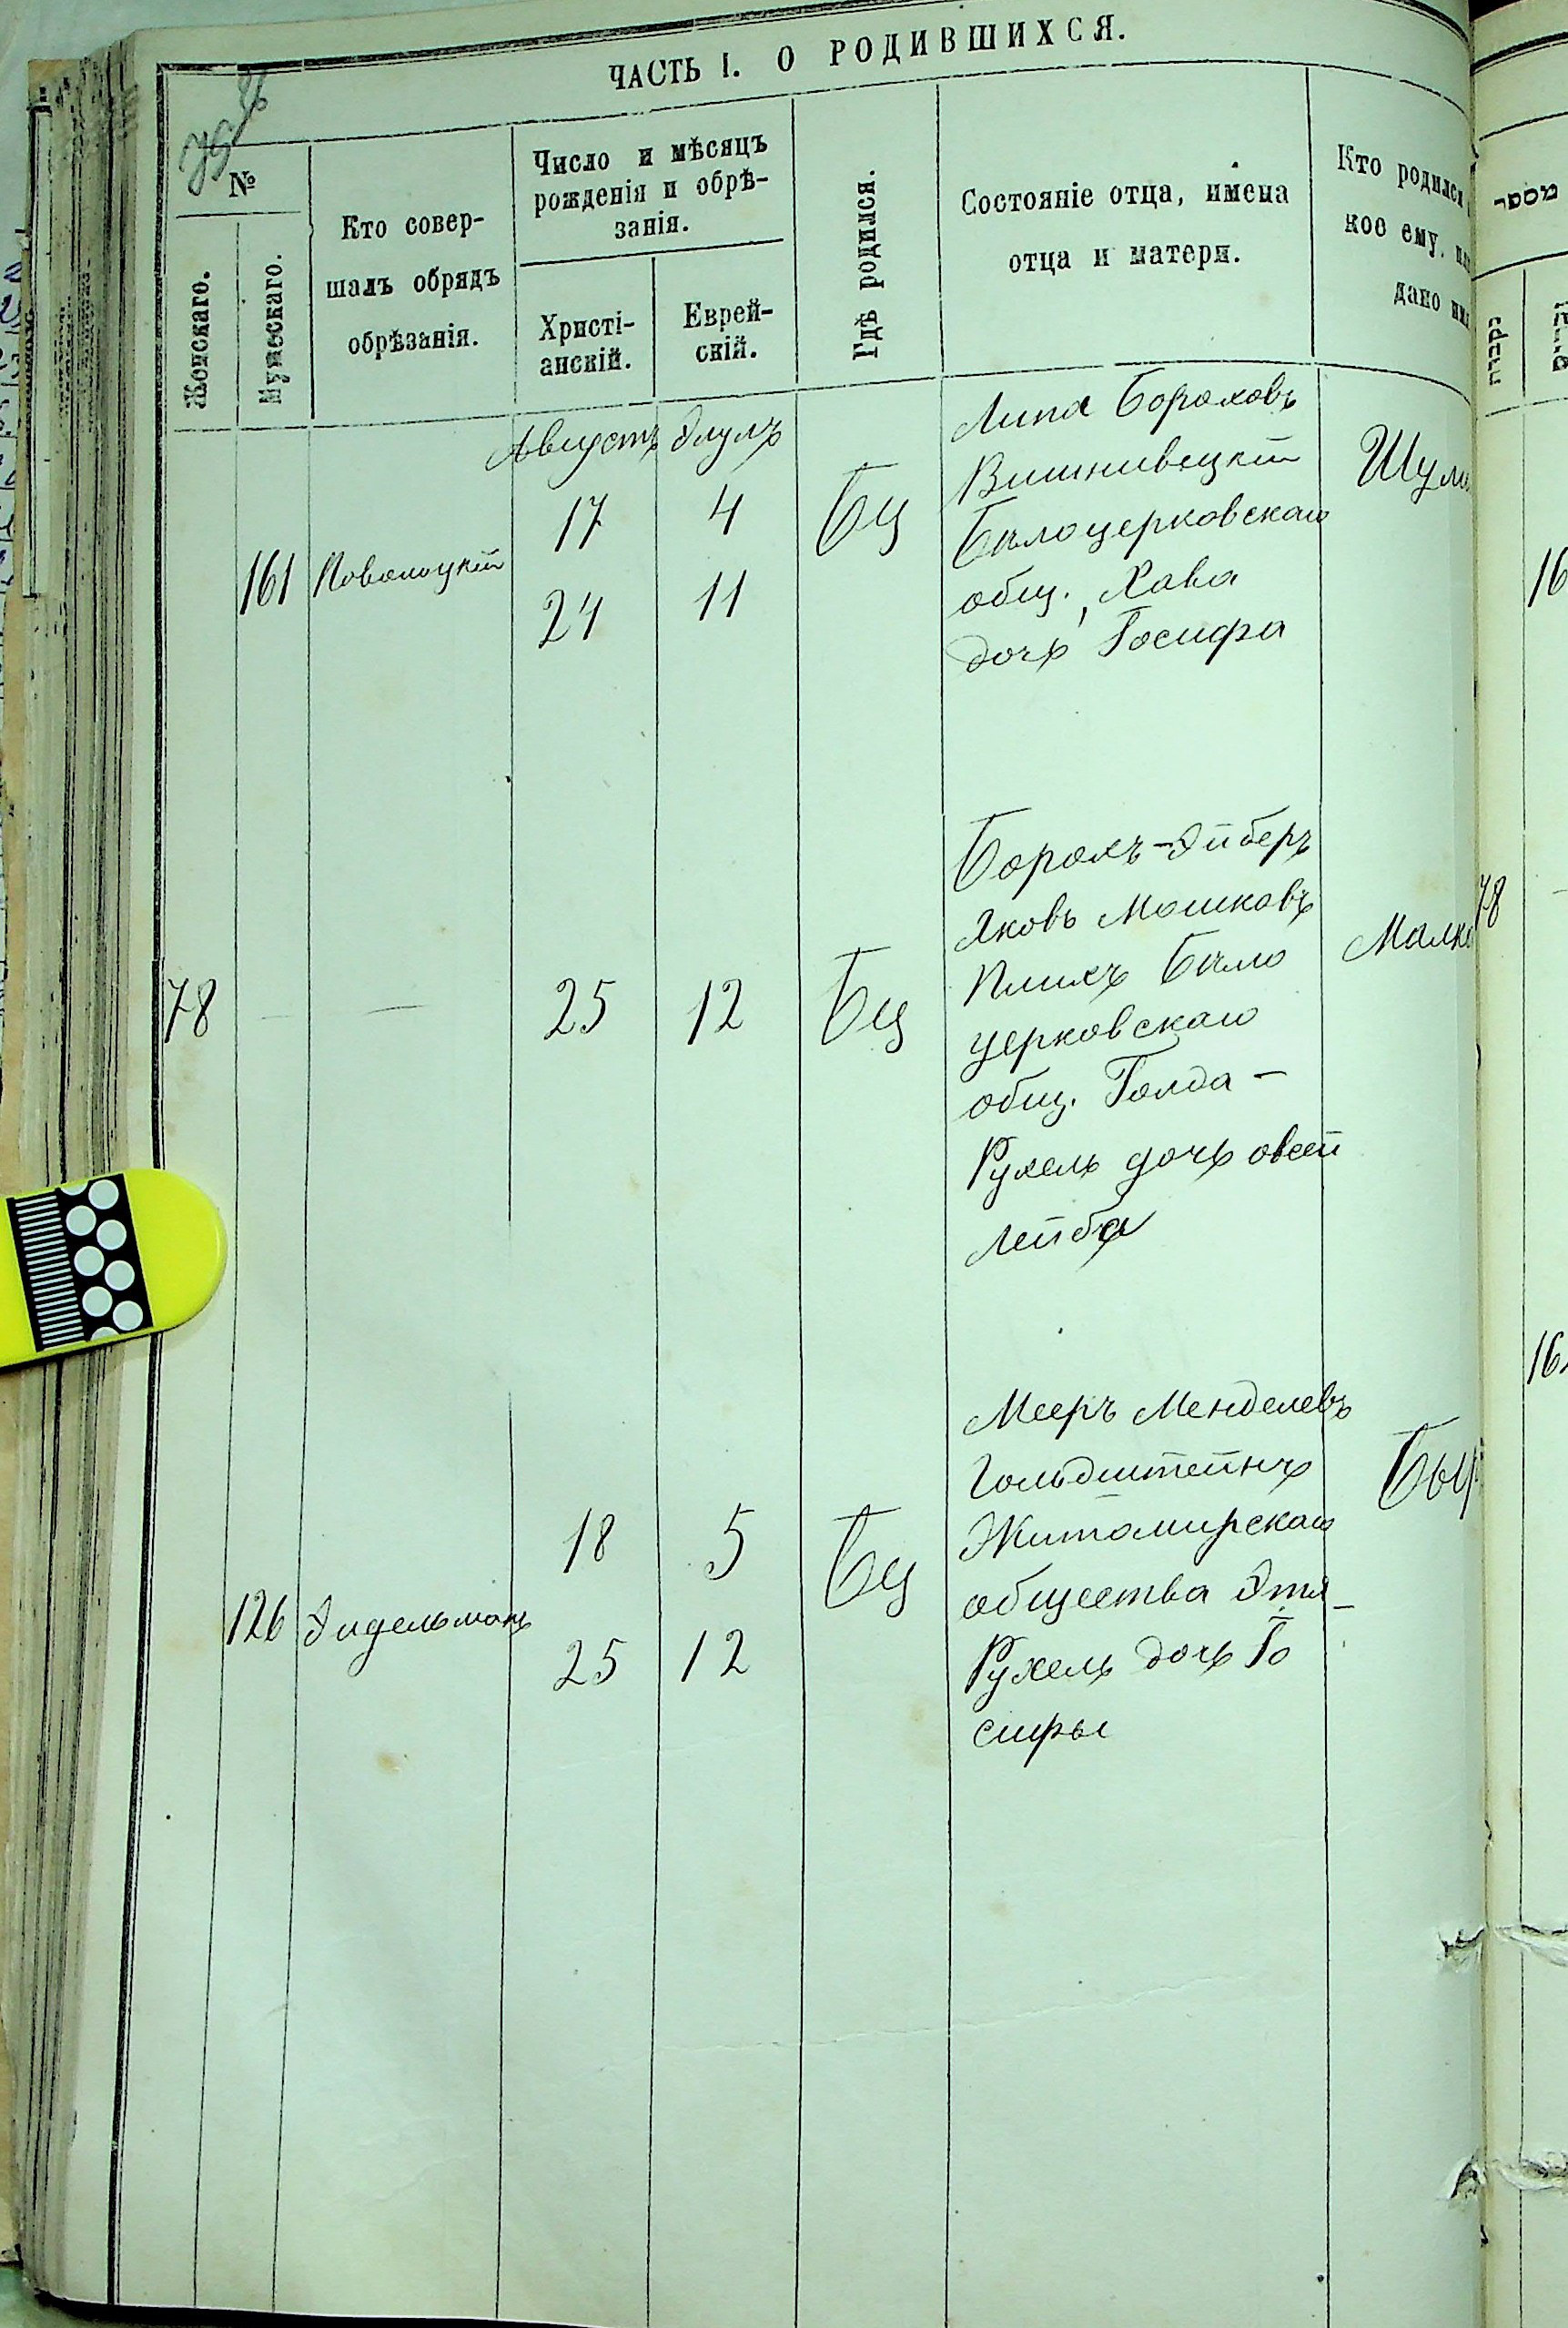 ЧАСТЬ I. О РОДИВШИХСЯ.
№
Женскаго.
Мужескаго.
Кто совер-
шалъ обрядъ
обрѣзанія.
Число и мѣсяцъ
рожденія и обрѣ-
занія.
Христі-
анскій.
Еврей-
скій.
Гдѣ родился.
Состояніе отца, имена
отца и матери.
Кто родился
кое ему, или
дано имя
Августъ Элулъ
161
17 4
24 11
БЦ
Липа Бороховъ
Вишнивецкій
Бѣлоцерковскаго
общ., Хава
дочь Іосифа
Шуль
78 — —
25 12
БЦ
Борохъ-Эйберъ
Яковъ Мошковъ
Бѣло
церковскаго
общ. Голда —
Рухель дочь овсей
Лейба
Малка
126 Эйдельманъ
18 5
25 12
БЦ
Мееръ Менделевъ
Гольдштейнъ
Житомирскаго
общества Этя-
Рухель дочь Іо
сифы
מספר
נקבות
78
16
16